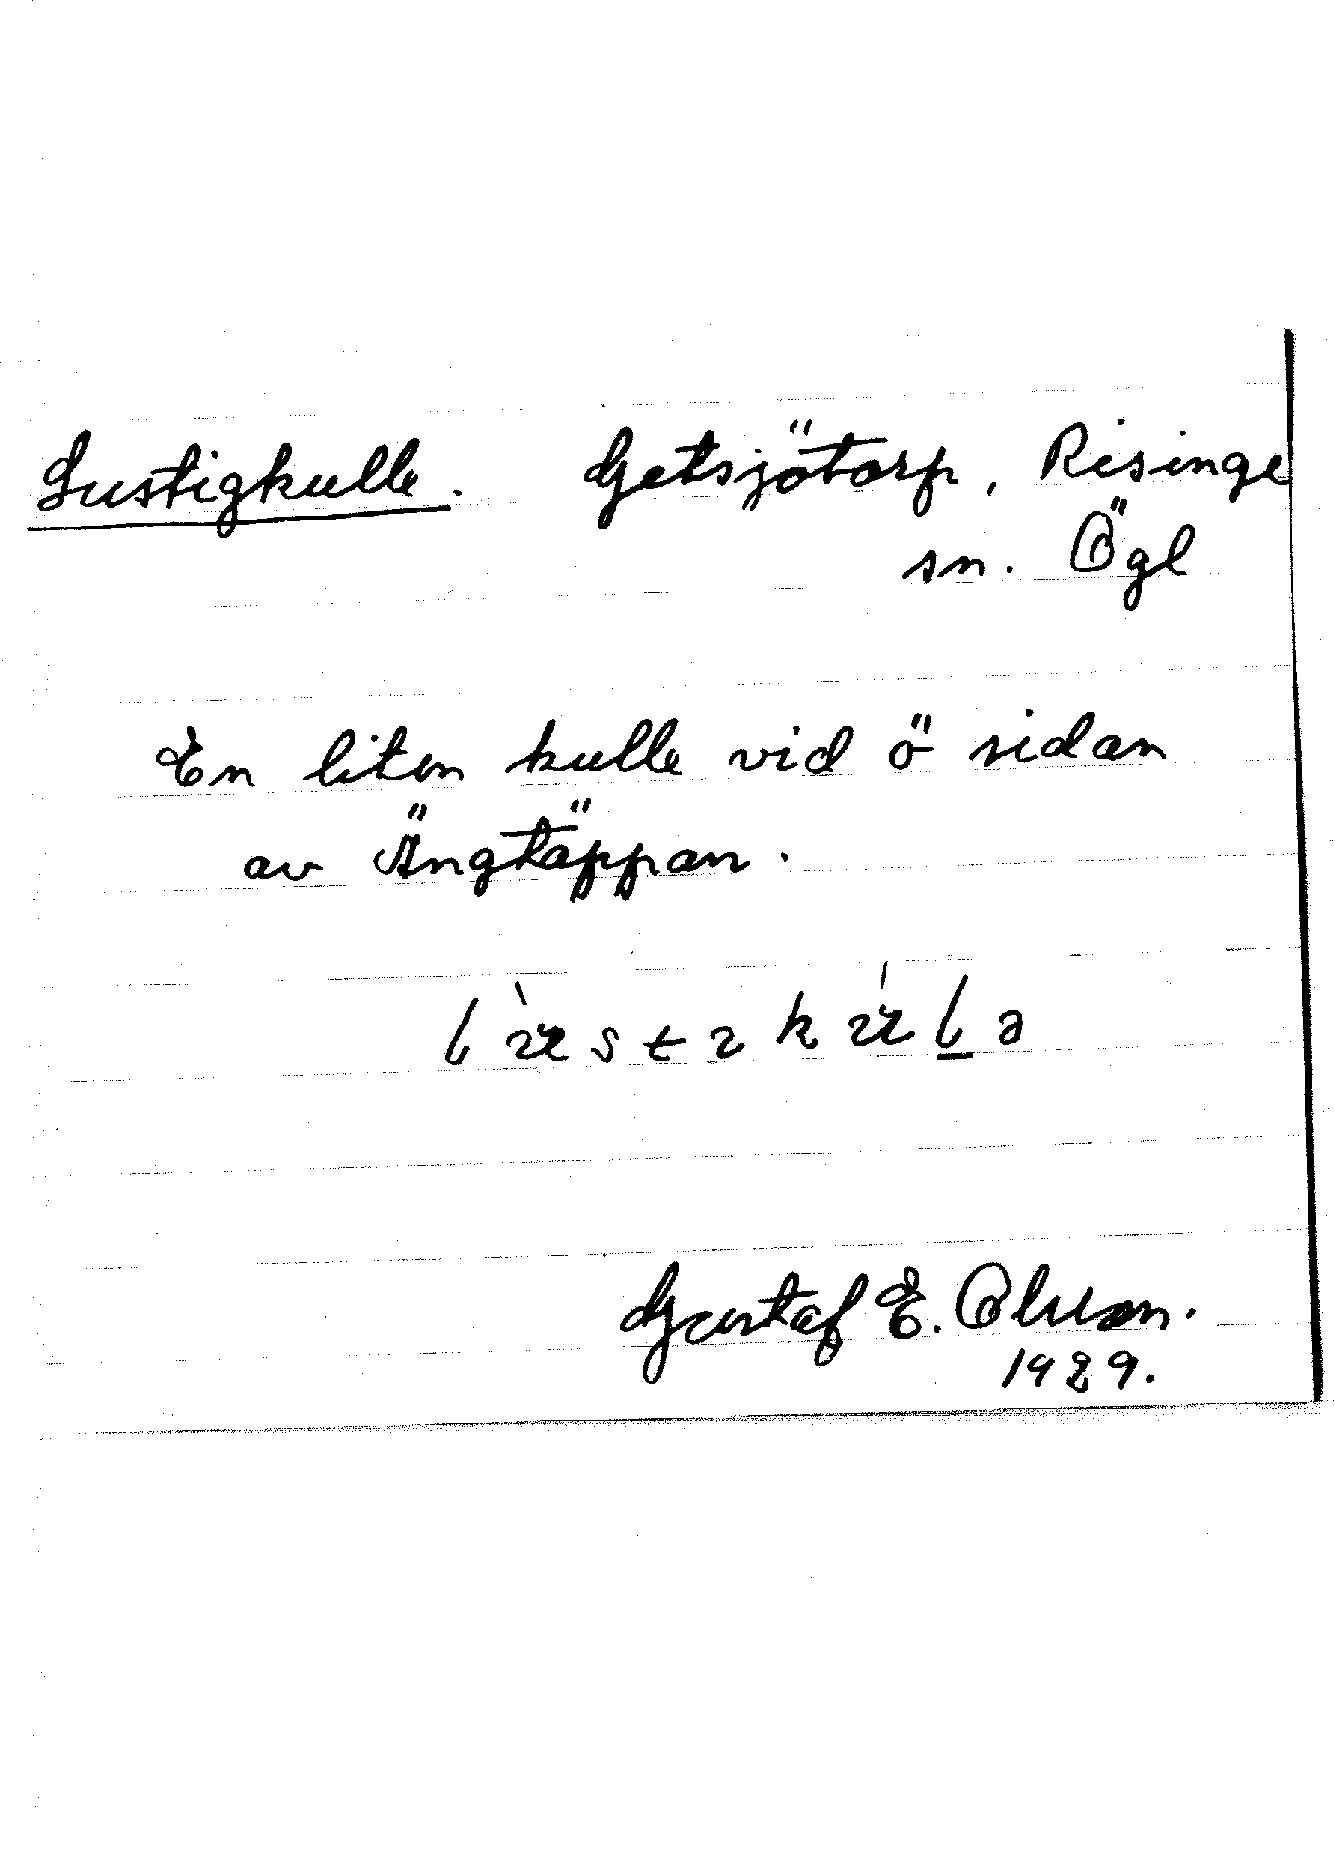 Lustigkulle. Getsjötorp, Risinge
sn. Ögl
En liten kulle vid ö sidan
av Ängtäppan.
Gustaf E. Olsson.
1929.